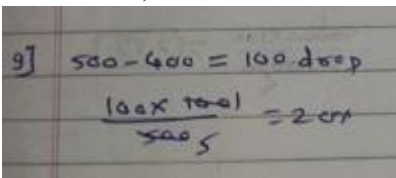 9] 500-400 = 100 drop
100x 100 1
500 5 = 2 cm